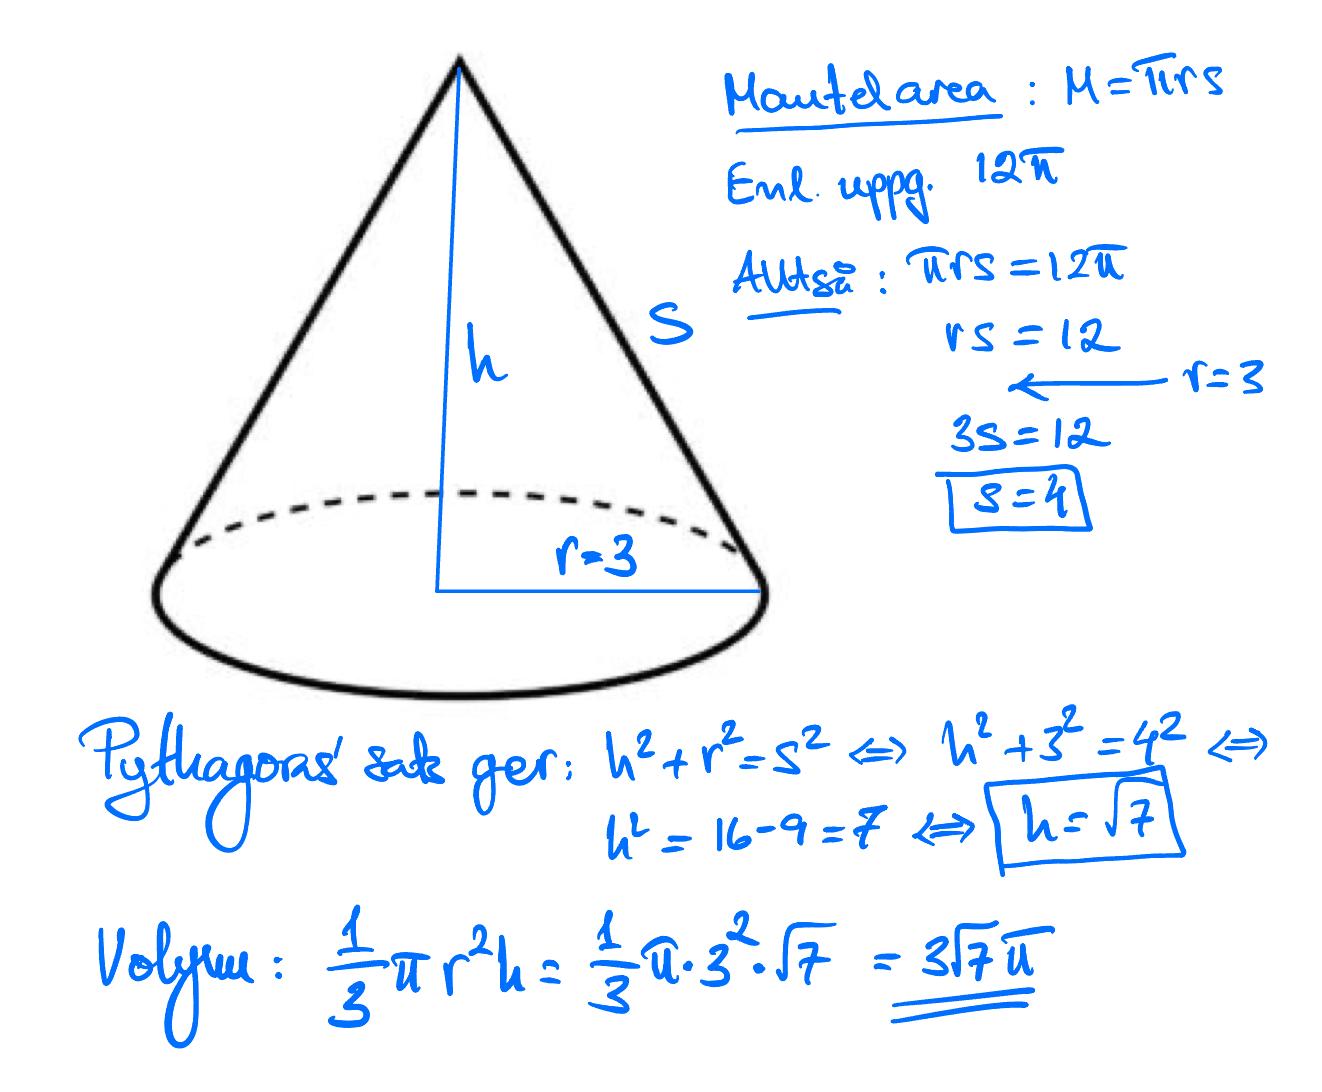 Mantelarea : M = πrs
Enl. uppg. 12π
Alltså : πrs = 12π
rs = 12
← r=3
3s = 12
s = 4
h
s
r=3
Pythagoras' sats ger: h² + r² = s² ⇔ h² + 3² = 4² ⇔
h² = 16 - 9 = 7 ⇔ h = √7
Volym : 1/3 π r² h = 1/3 π · 3² · √7 = 3√7 π